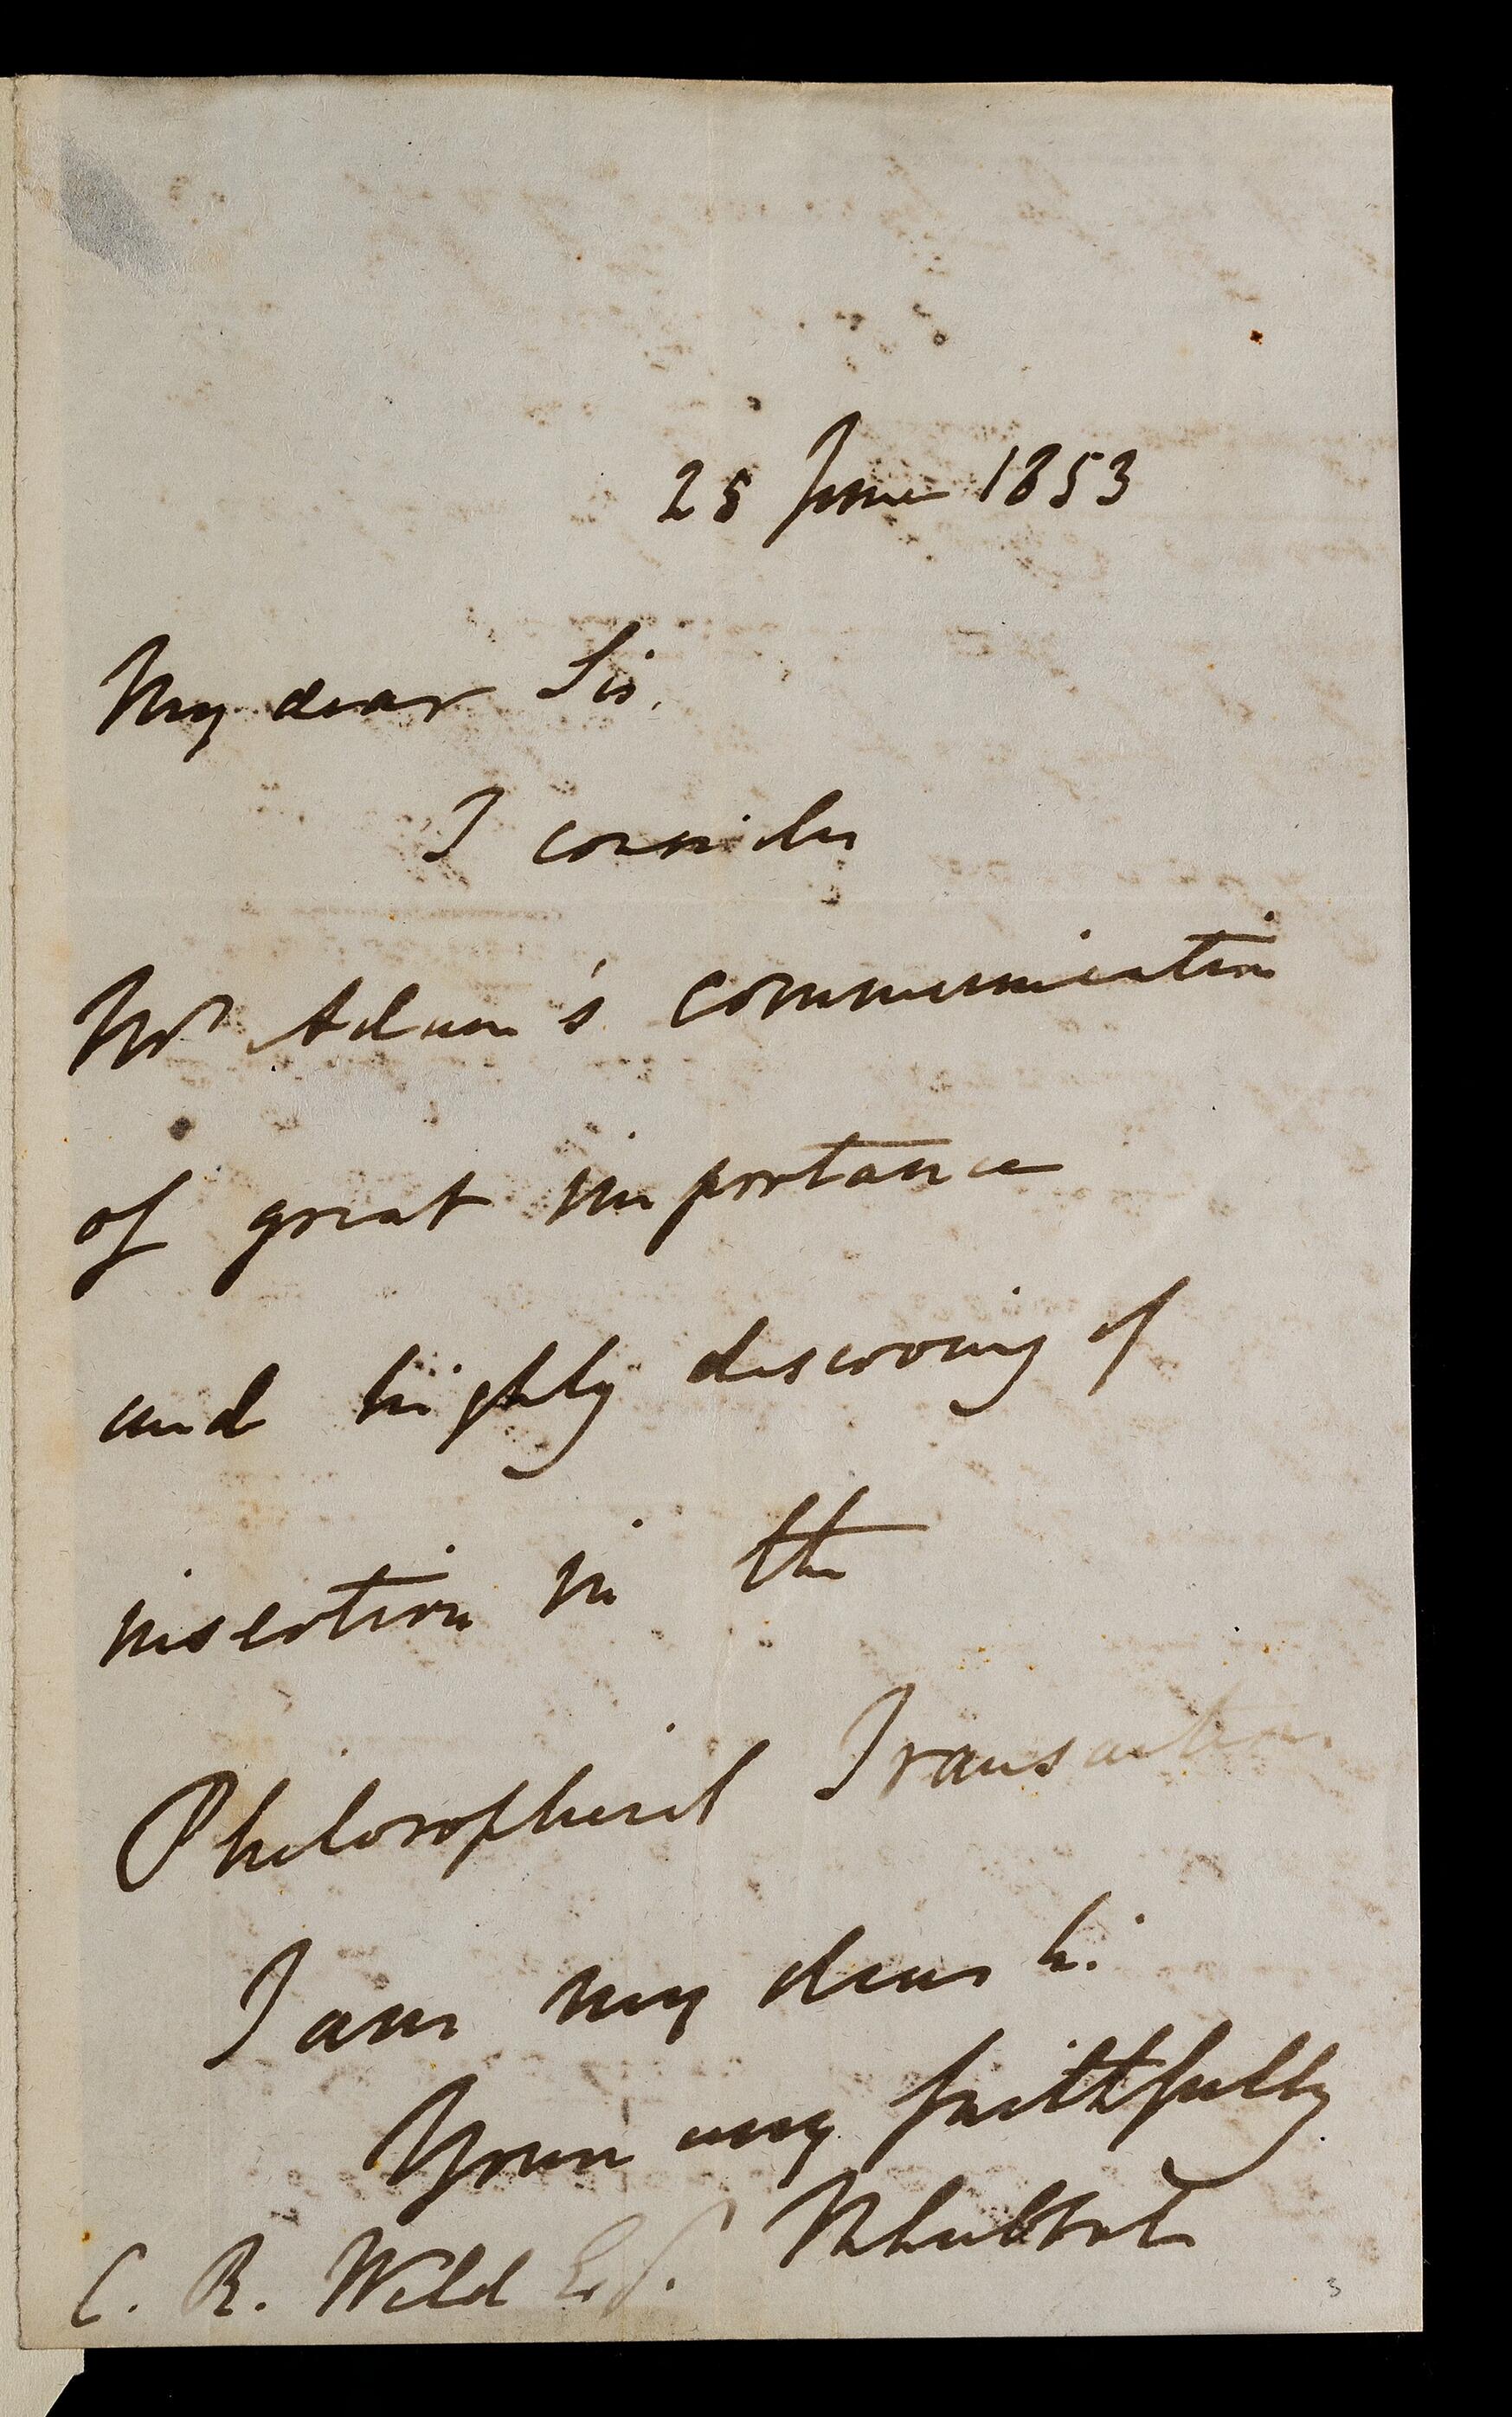 25 June 1853
My dear Sir,
I consider
Mr Adam's communication
of great importance
and highly deserving of
insertion in the
Philosophical Transactions
I am my dear Sir
Yours very faithfully
JWLubbock
C. R. Weld Esq.
3